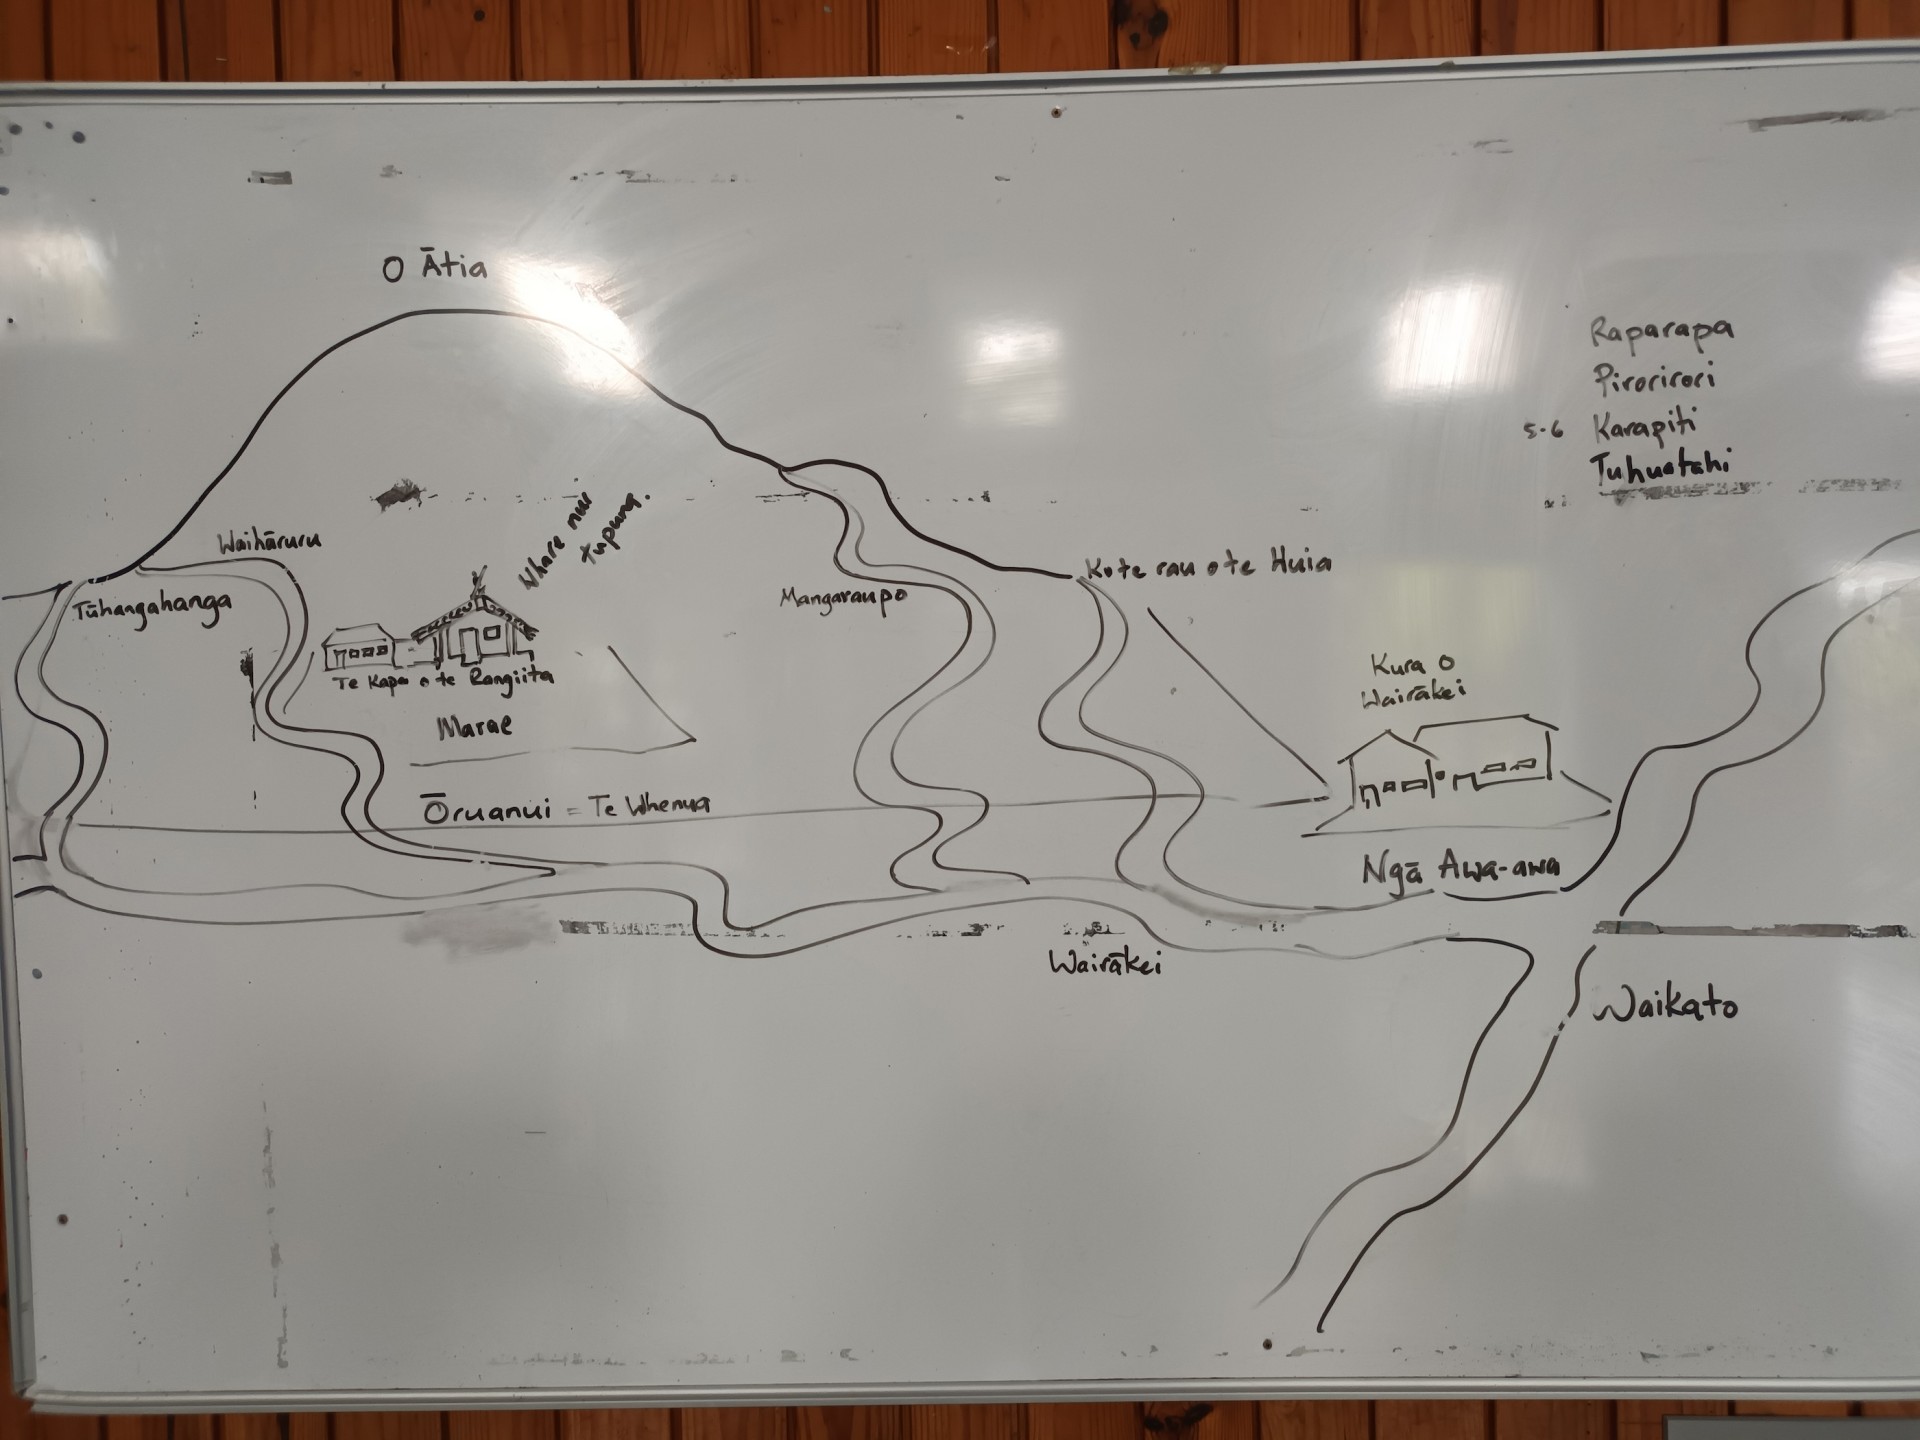 O Ātia
Raparapa
Pirorirori
5-6 Karapiti
Tuhuatahi
Waihāruru
Whare nui
Tupuna.
Tūhangahanga
Mangaraupo
Ko te rau o te Huia
Te Kapa o te Rangiita
Marae
Kura O
Wairākei
Ōruanui = Te Whenua
Ngā Awa-awa
Wairākei
Waikato